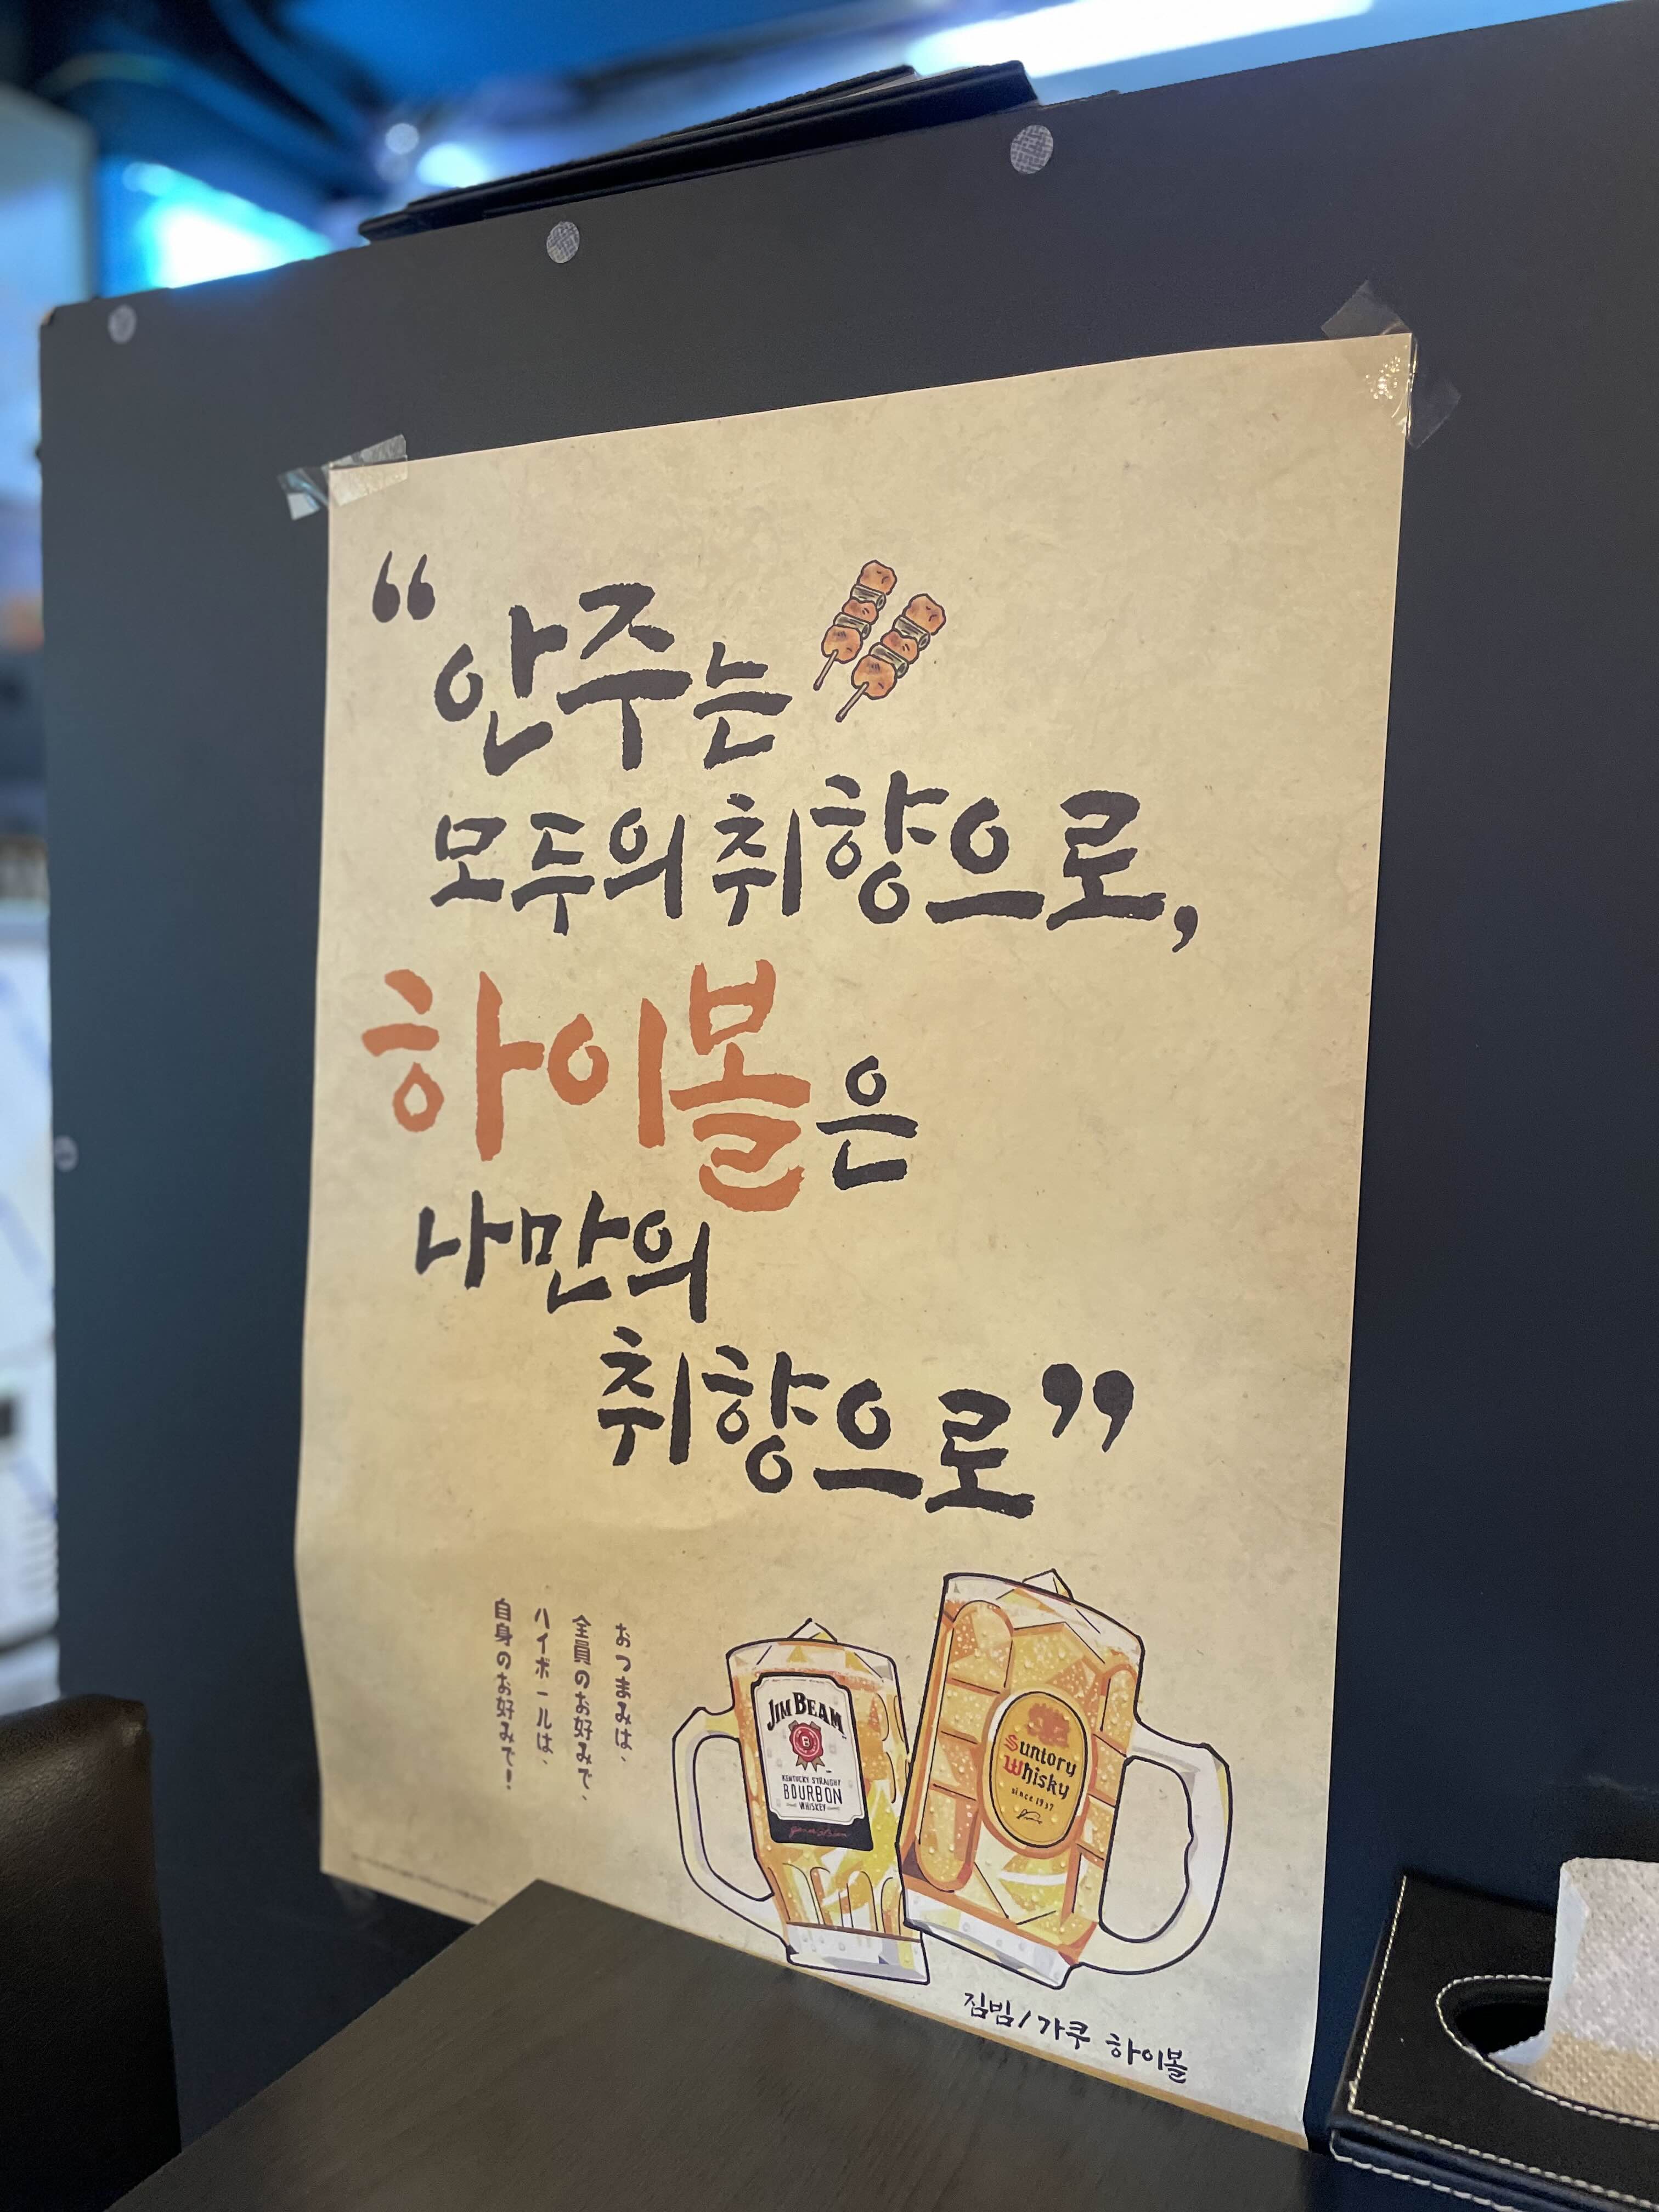 “안주는
모두의 취향으로,
하이볼은
나만의
취향으로”
おつまみは、
全員のお好みで、
ハイボールは、
自身のお好みで！
JIM BEAM
B
KENTUCKY STRAIGHT
BOURBON
WHISKEY
Suntory
Whisky
since 1937
짐빔/가쿠 하이볼